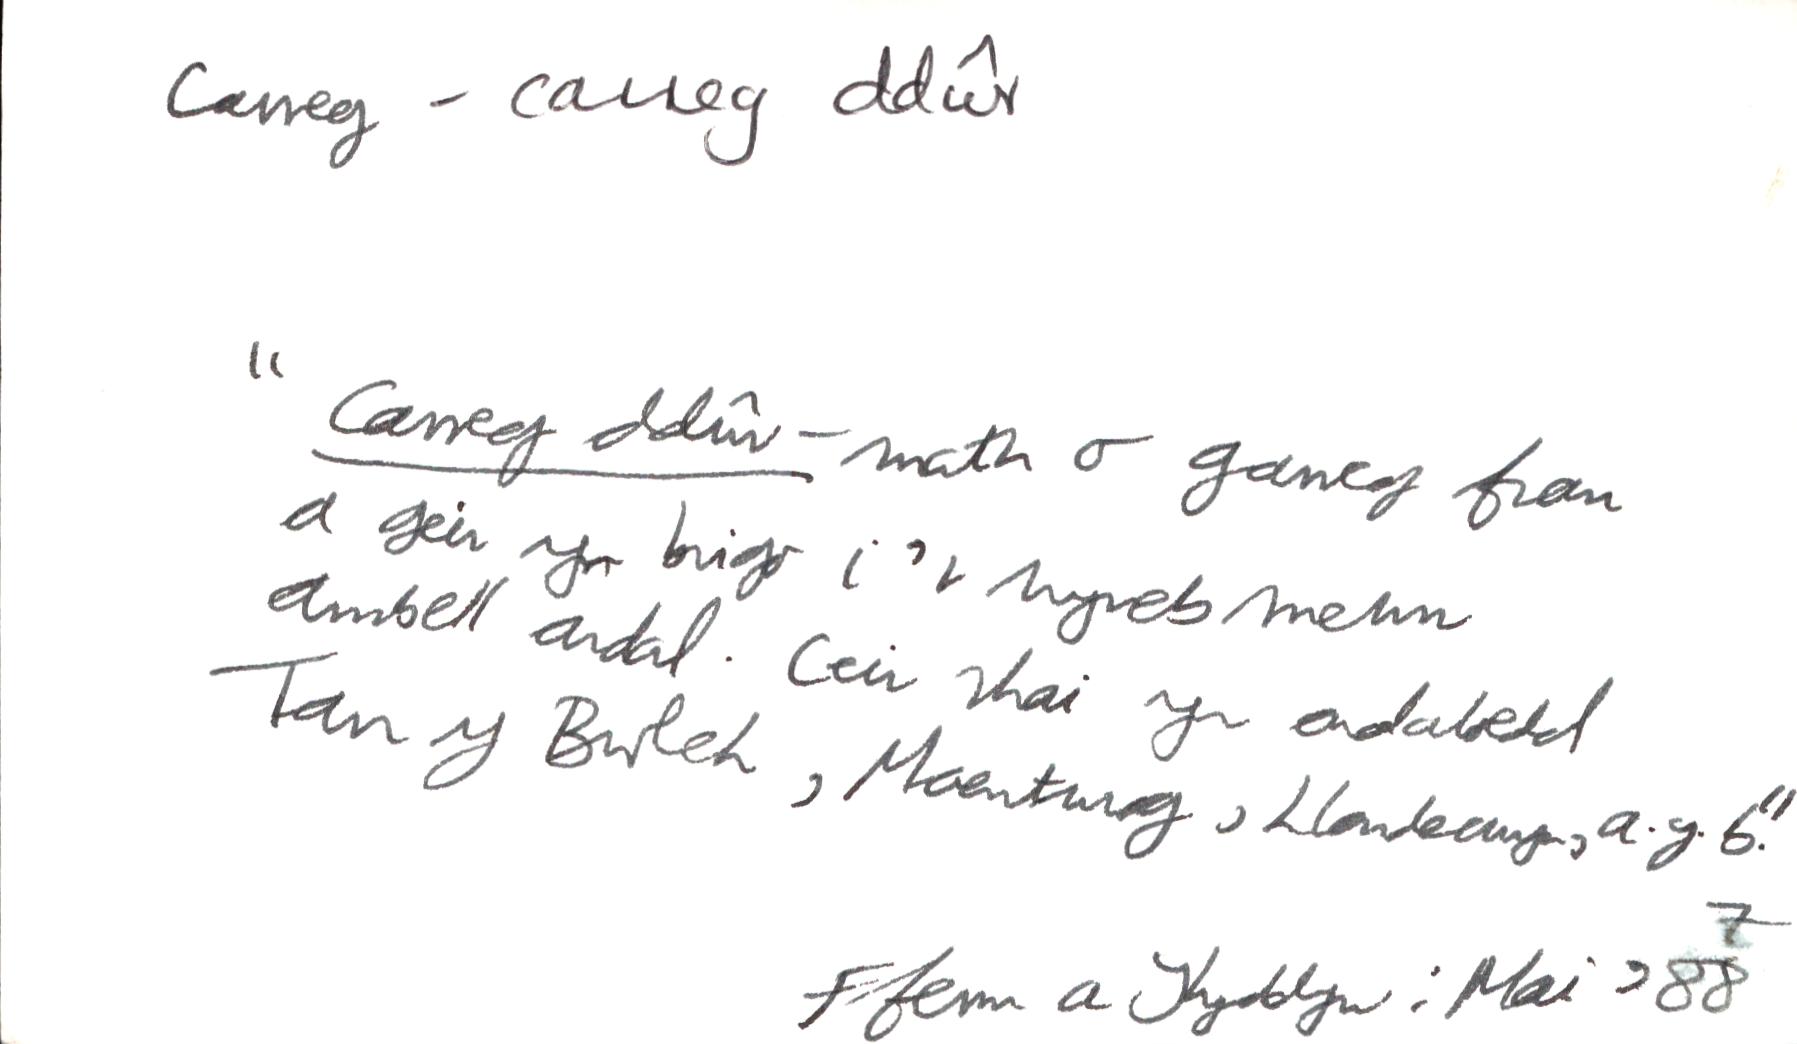 Carreg - carreg ddŵr
"Carreg ddŵr - math o garreg fran
a geir yn brigo i'r wyneb mewn
ambell ardal. Ceir rhai yn ardaloedd
Tan y Bwlch, Maentwrog, Llandecwyn, a.y.b."
7
Fferm a Thyddyn : Mai '88